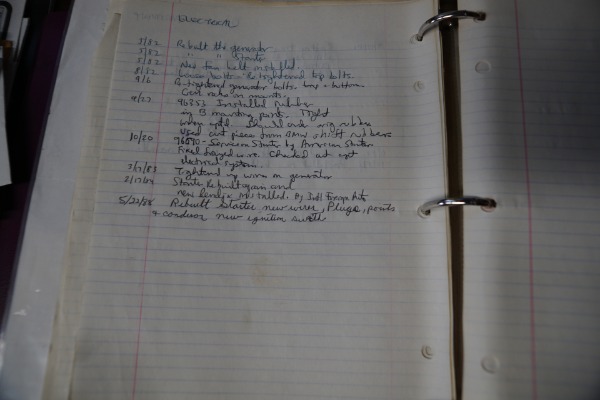 Electrical
5/82 Rebuilt the generator
5/82 " " Starter
5/82 New fan belt installed.
8/12 Loose bolts - Retightened top bolts.
9/6 Retightened generator bolts. top + bottom.
on mounts.
9/27 96853 Installed Rubber
in B mounting parts. Tight
when cold. Should only use rubber
Used cut pieces from BMW shift rubbers
10/20 96890 - Service on Starter by American Starter
Fixed frayed wire. Checked out
electrical system.
7/7/83 Tightened up worn on generator
2/17/ Starter Rebuilt again and
new installed. By Intl Foreign Auto
5/22/88 Rebuilt Starter new wires, Plugs, points
+ condenser new ignition switch